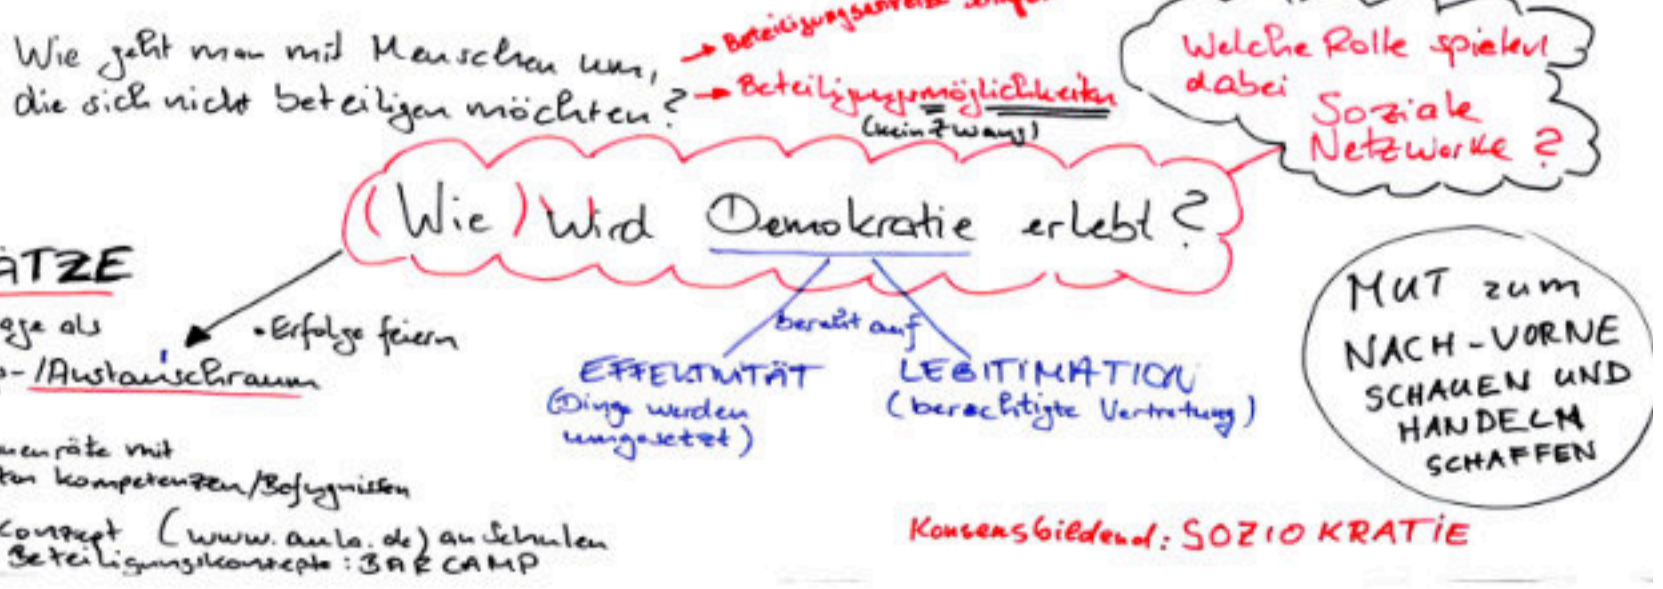 Wie geht man mit Menschen um,
die sich nicht beteiligen möchten?
→ Beteiligungsanreize
→ Beteiligungsmöglichkeiten
(kein Zwang)
Welche Rolle spielen
dabei
Soziale
Netzwerke?
(Wie) Wird Demokratie erlebt?
ÄTZE
age als
-/Austauschraum
• Erfolge feiern
beruht auf
EFFEKTIVITÄT
(Dinge werden
umgesetzt)
LEGITIMATION
(berechtigte Vertretung)
MUT zum
NACH-VORNE
SCHAUEN UND
HANDELN
SCHAFFEN
räte mit
ten Kompetenzen/Befugnissen
Konzept (www.aula.de) an Schulen
Beteiligungskonzepte: BARCAMP
Konsensbildend: SOZIOKRATIE